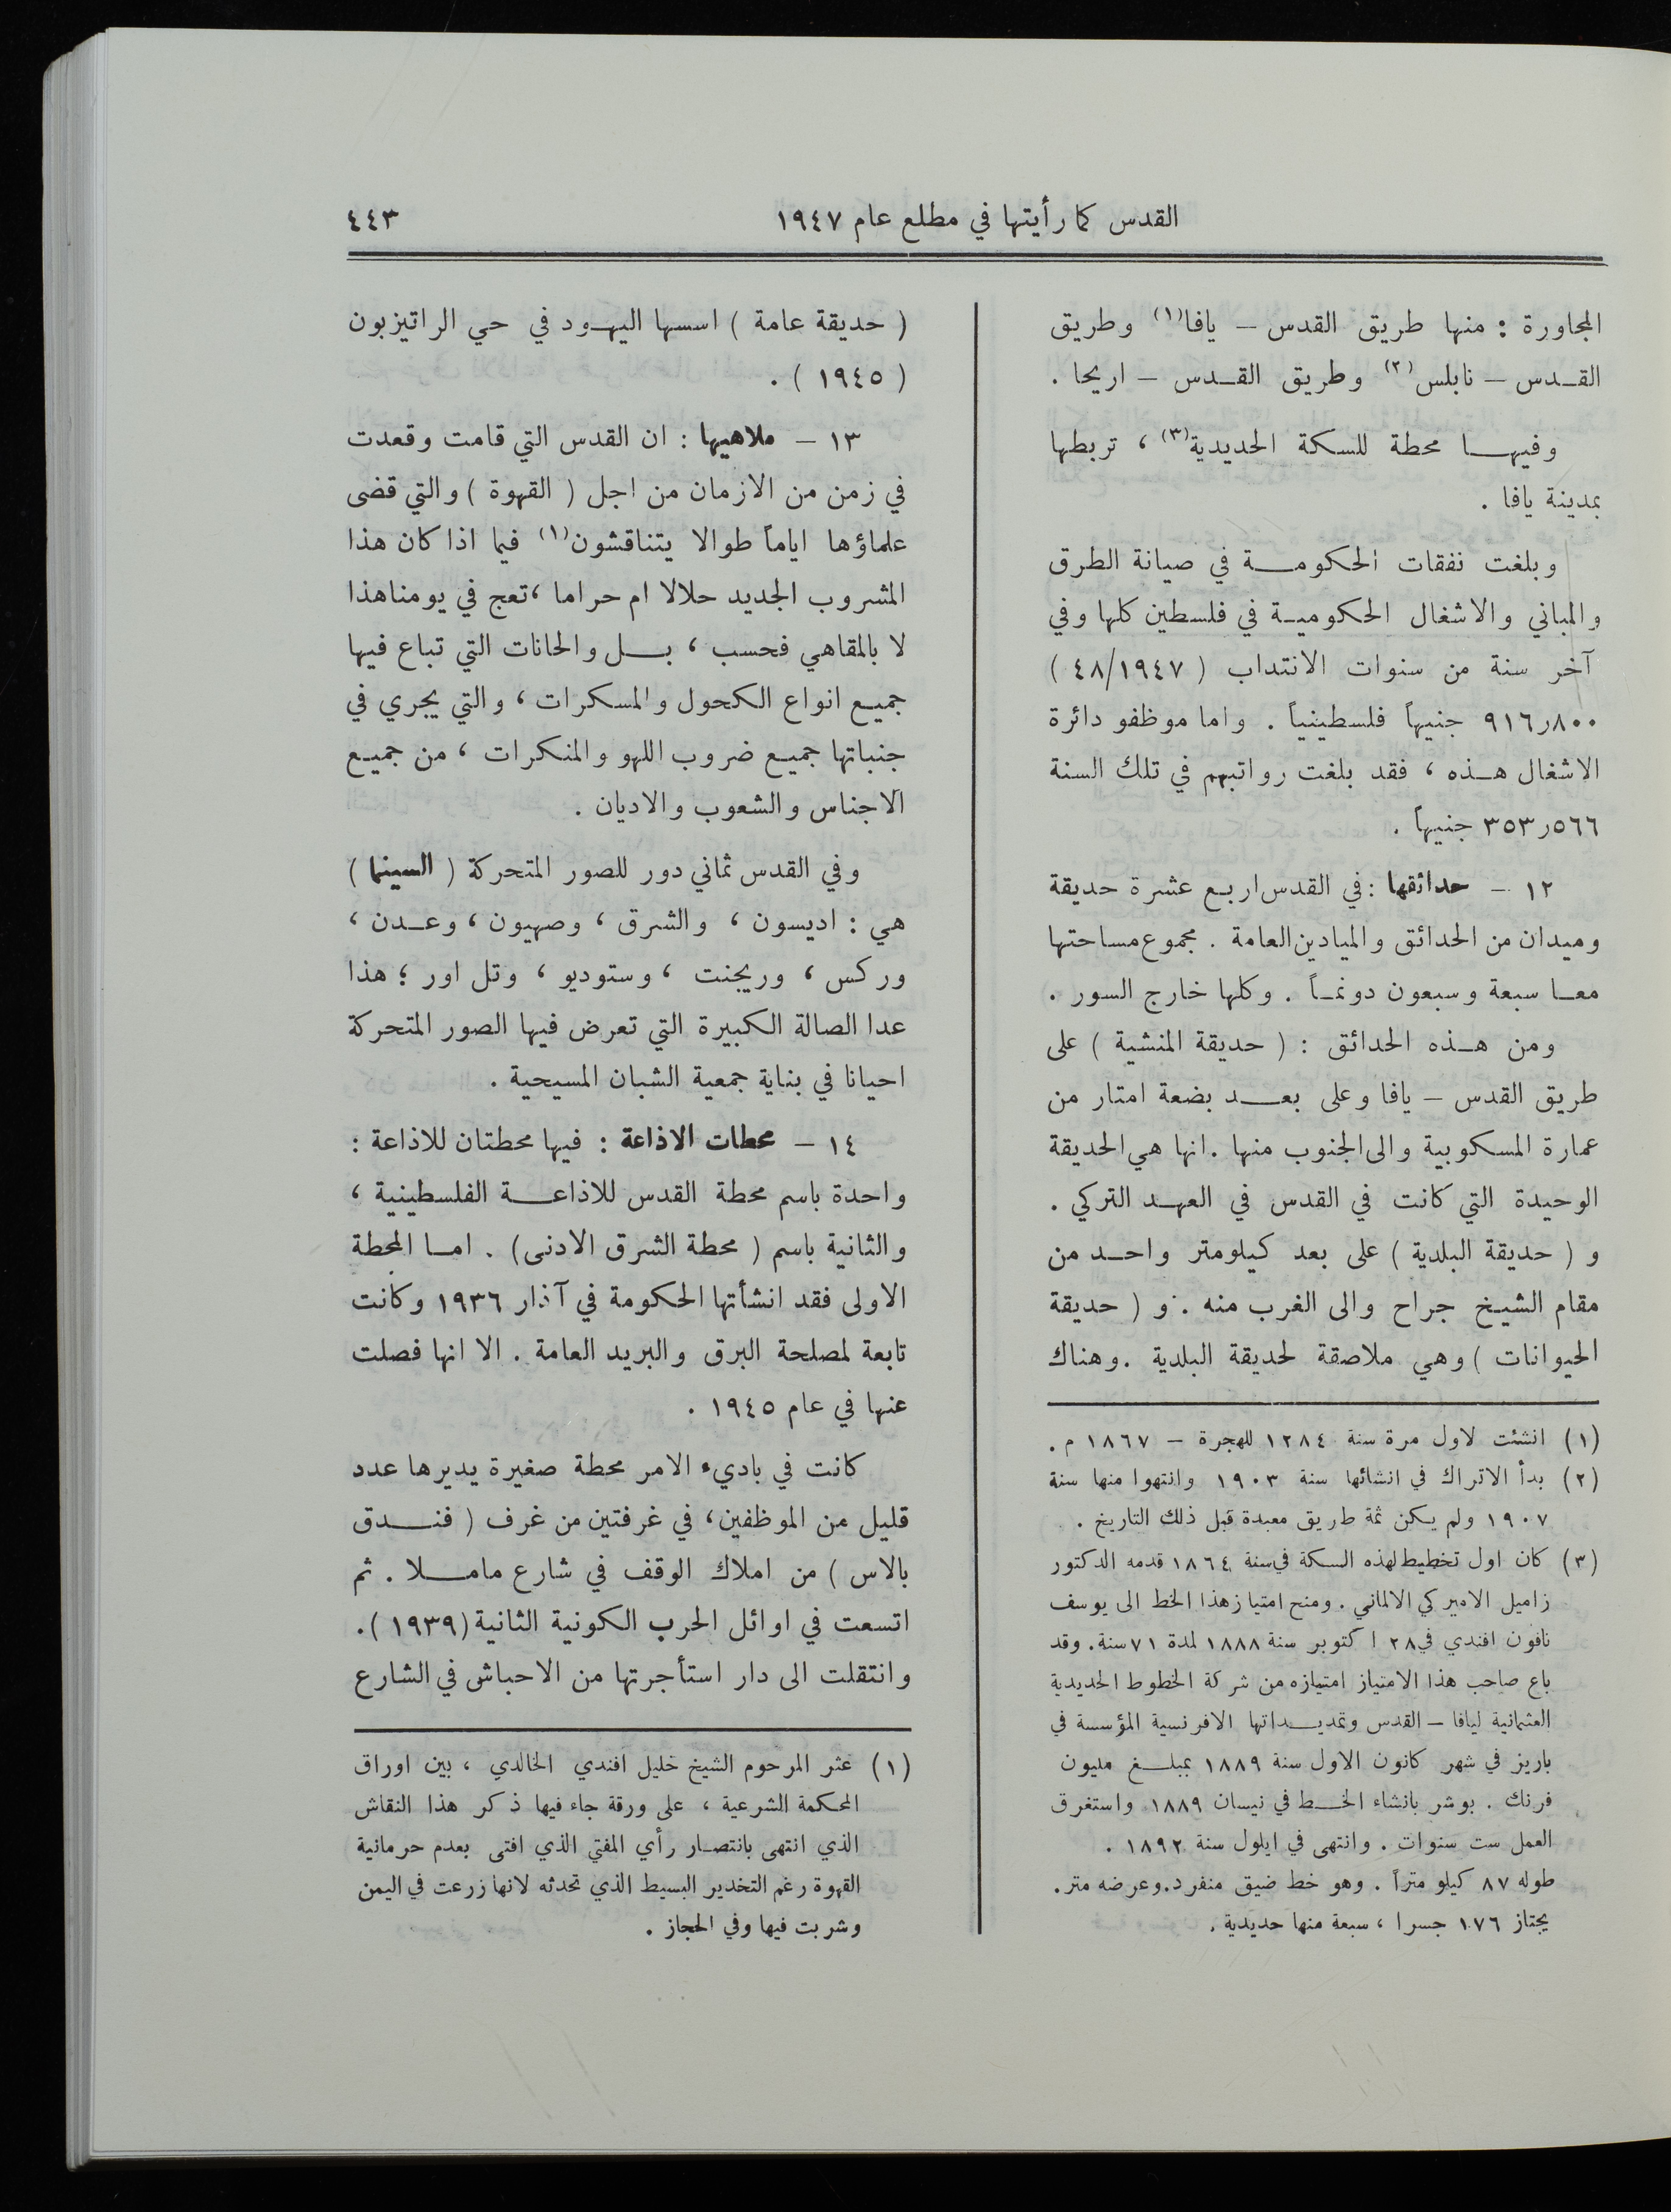 القدس كما رأيتها في مطلع عام ١٩٤٧
٤٤٣
المجاورة : منها طريق القدس – يافا(١) وطريق
القدس – نابلس(٢) وطريق القدس – اريحا .
وفيها محطة للسكة الحديدية(٣) ، تربطها
بمدينة يافا .
وبلغت نفقات الحكومة في صيانة الطرق
والمباني والاشغال الحكومية في فلسطين كلها وفي
آخر سنة من سنوات الانتداب ( ٤٨/١٩٤٧ )
٩١٦٫٨٠٠ جنيهاً فلسطينياً . واما موظفو دائرة
الاشغال هذه ، فقد بلغت رواتبهم في تلك السنة
٣٥٣٫٥٦٦ جنيهاً .
١٢ – حدائقها : في القدس اربع عشرة حديقة
وميدان من الحدائق والميادين العامة . مجموع مساحتها
معا سبعة وسبعون دونماً . وكلها خارج السور .
ومن هذه الحدائق : ( حديقة المنشية ) على
طريق القدس – يافا وعلى بعد بضعة امتار من
عمارة المسكوبية والى الجنوب منها . انها هي الحديقة
الوحيدة التي كانت في القدس في العهد التركي .
و ( حديقة البلدية ) على بعد كيلومتر واحد من
مقام الشيخ جراح والى الغرب منه . و ( حديقة
الحيوانات ) وهي ملاصقة لحديقة البلدية . وهناك
(١) انشئت لاول مرة سنة ١٢٨٤ للهجرة – ١٨٦٧ م .
(٢) بدأ الاتراك في انشائها سنة ١٩٠٣ وانتهوا منها سنة
١٩٠٧ ولم يكن ثمة طريق معبدة قبل ذلك التاريخ .
(٣) كان اول تخطيط لهذه السكة في سنة ١٨٦٤ قدمه الدكتور
زاميل الاميركي الالماني . ومنح امتياز هذا الخط الى يوسف
نافون افندي في ٢٨ اكتوبر سنة ١٨٨٨ لمدة ٧١ سنة . وقد
باع صاحب هذا الامتياز امتيازه من شركة الخطوط الحديدية
العثمانية ليافا – القدس وتمديداتها الافرنسية المؤسسة في
باريز في شهر كانون الاول سنة ١٨٨٩ بمبلغ مليون
فرنك . بوشر بانشاء الخط في نيسان ١٨٨٩ واستغرق
العمل ست سنوات . وانتهى في ايلول سنة ١٨٩٢ .
طوله ٨٧ كيلو متراً . وهو خط ضيق منفرد . وعرضه متر .
يجتاز ١٧٦ جسرا ، سبعة منها حديدية .
( حديقة عامة ) اسسها اليهود في حي الراتيزبون
( ١٩٤٥ ) .
١٣ – ملاهيها : ان القدس التي قامت وقعدت
في زمن من الازمان من اجل ( القهوة ) والتي قضى
علماؤها اياماً طوالا يتناقشون(١) فيما اذا كان هذا
المشروب الجديد حلالا ام حراما ، تعج في يومنا هذا
لا بالمقاهي فحسب ، بل والحانات التي تباع فيها
جميع انواع الكحول والمسكرات ، والتي يجري في
جنباتها جميع ضروب اللهو والمنكرات ، من جميع
الاجناس والشعوب والاديان .
وفي القدس ثماني دور للصور المتحركة ( السينما )
هي : اديسون ، والشرق ، وصهيون ، وعدن ،
وركس ، وريجنت ، وستوديو ، وتل اور ؛ هذا
عدا الصالة الكبيرة التي تعرض فيها الصور المتحركة
احيانا في بناية جمعية الشبان المسيحية .
١٤ – محطات الاذاعة : فيها محطتان للاذاعة :
واحدة باسم محطة القدس للاذاعة الفلسطينية ،
والثانية باسم ( محطة الشرق الادنى ) . اما المحطة
الاولى فقد انشأتها الحكومة في آذار ١٩٣٦ وكانت
تابعة لمصلحة البرق والبريد العامة . الا انها فصلت
عنها في عام ١٩٤٥ .
كانت في باديء الامر محطة صغيرة يديرها عدد
قليل من الموظفين ، في غرفتين من غرف ( فندق
بالاس ) من املاك الوقف في شارع ماملا . ثم
اتسعت في اوائل الحرب الكونية الثانية ( ١٩٣٩ ) .
وانتقلت الى دار استأجرتها من الاحباش في الشارع
(١) عثر المرحوم الشيخ خليل افندي الخالدي ، بين اوراق
المحكمة الشرعية ، على ورقة جاء فيها ذكر هذا النقاش
الذي انتهى بانتصار رأي المفتي الذي افتى بعدم حرمانية
القهوة رغم التخدير البسيط الذي تحدثه لانها زرعت في اليمن
وشربت فيها وفي الحجاز .